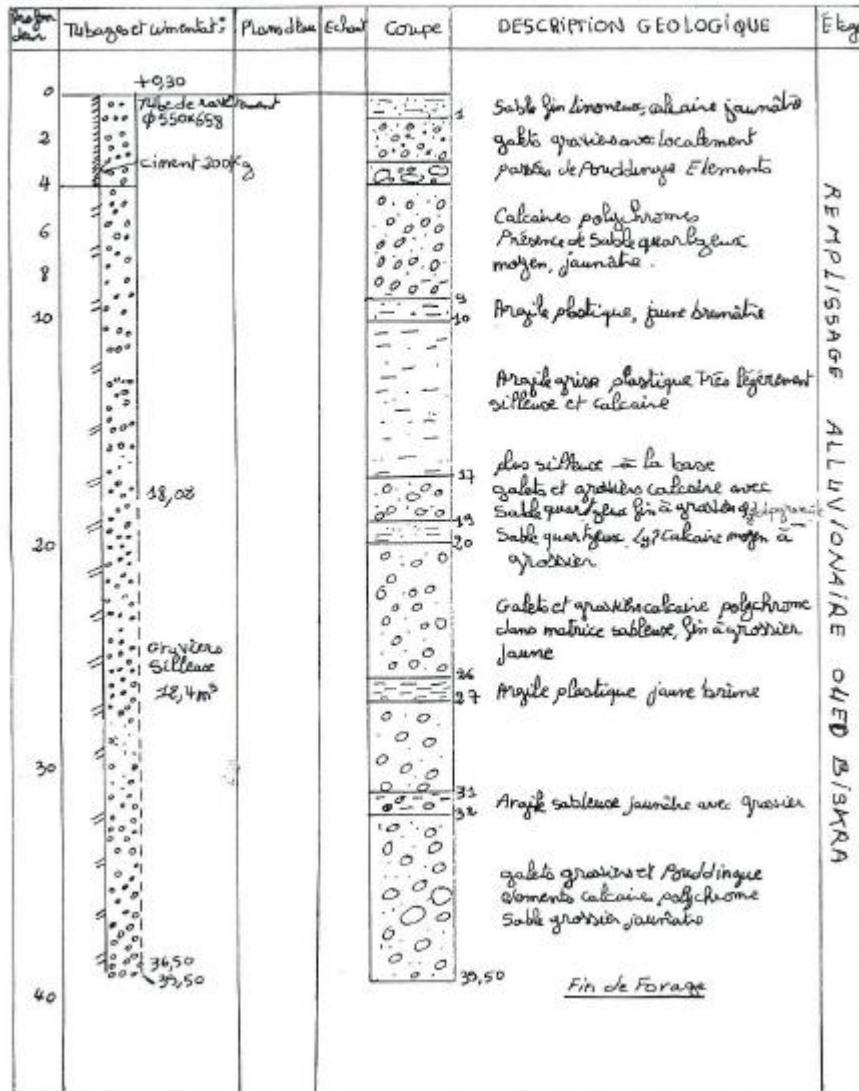 Profondeur
Tubages et cimentat:
Plans d'eau
Echant
Coupe
DESCRIPTION GEOLOGIQUE
Étage
+0,30
0
Tube de
Φ 550x658
2
ciment 200Kg
4
6
8
10
18,02
20
Graviers
Silleuse
12,4m³
30
36,50
39,50
40
1
9
10
17
19
20
26
27
31
32
39,50
Sable fin limoneux, calcaire jaunâtre
galets graviers avec localement
passées de Pouddingue Elements
Calcaires polychromes
Présence de Sable quartzeux
moyen, jaunâtre.
Argile plastique, jaune brunâtre
Argile grise plastique Très légérement
silteuse et calcaire
plus silteuse à la base
galets et graviers calcaire avec
Sable quartzeux fin à grossier
Sable quartzeux Calcaire moyen à
grossier
Galets et graviers calcaire polychrome
dans matrice sableuse, fin à grossier
jaune
Argile plastique jaune brune
Argile sableuse jaunâtre avec grossier
galets graviers et Pouddingue
elements calcaires, polychrome
Sable grossier jaunâtre
Fin de Forage
REMPLISSAGE ALLUVIONAIRE OUED BISKRA